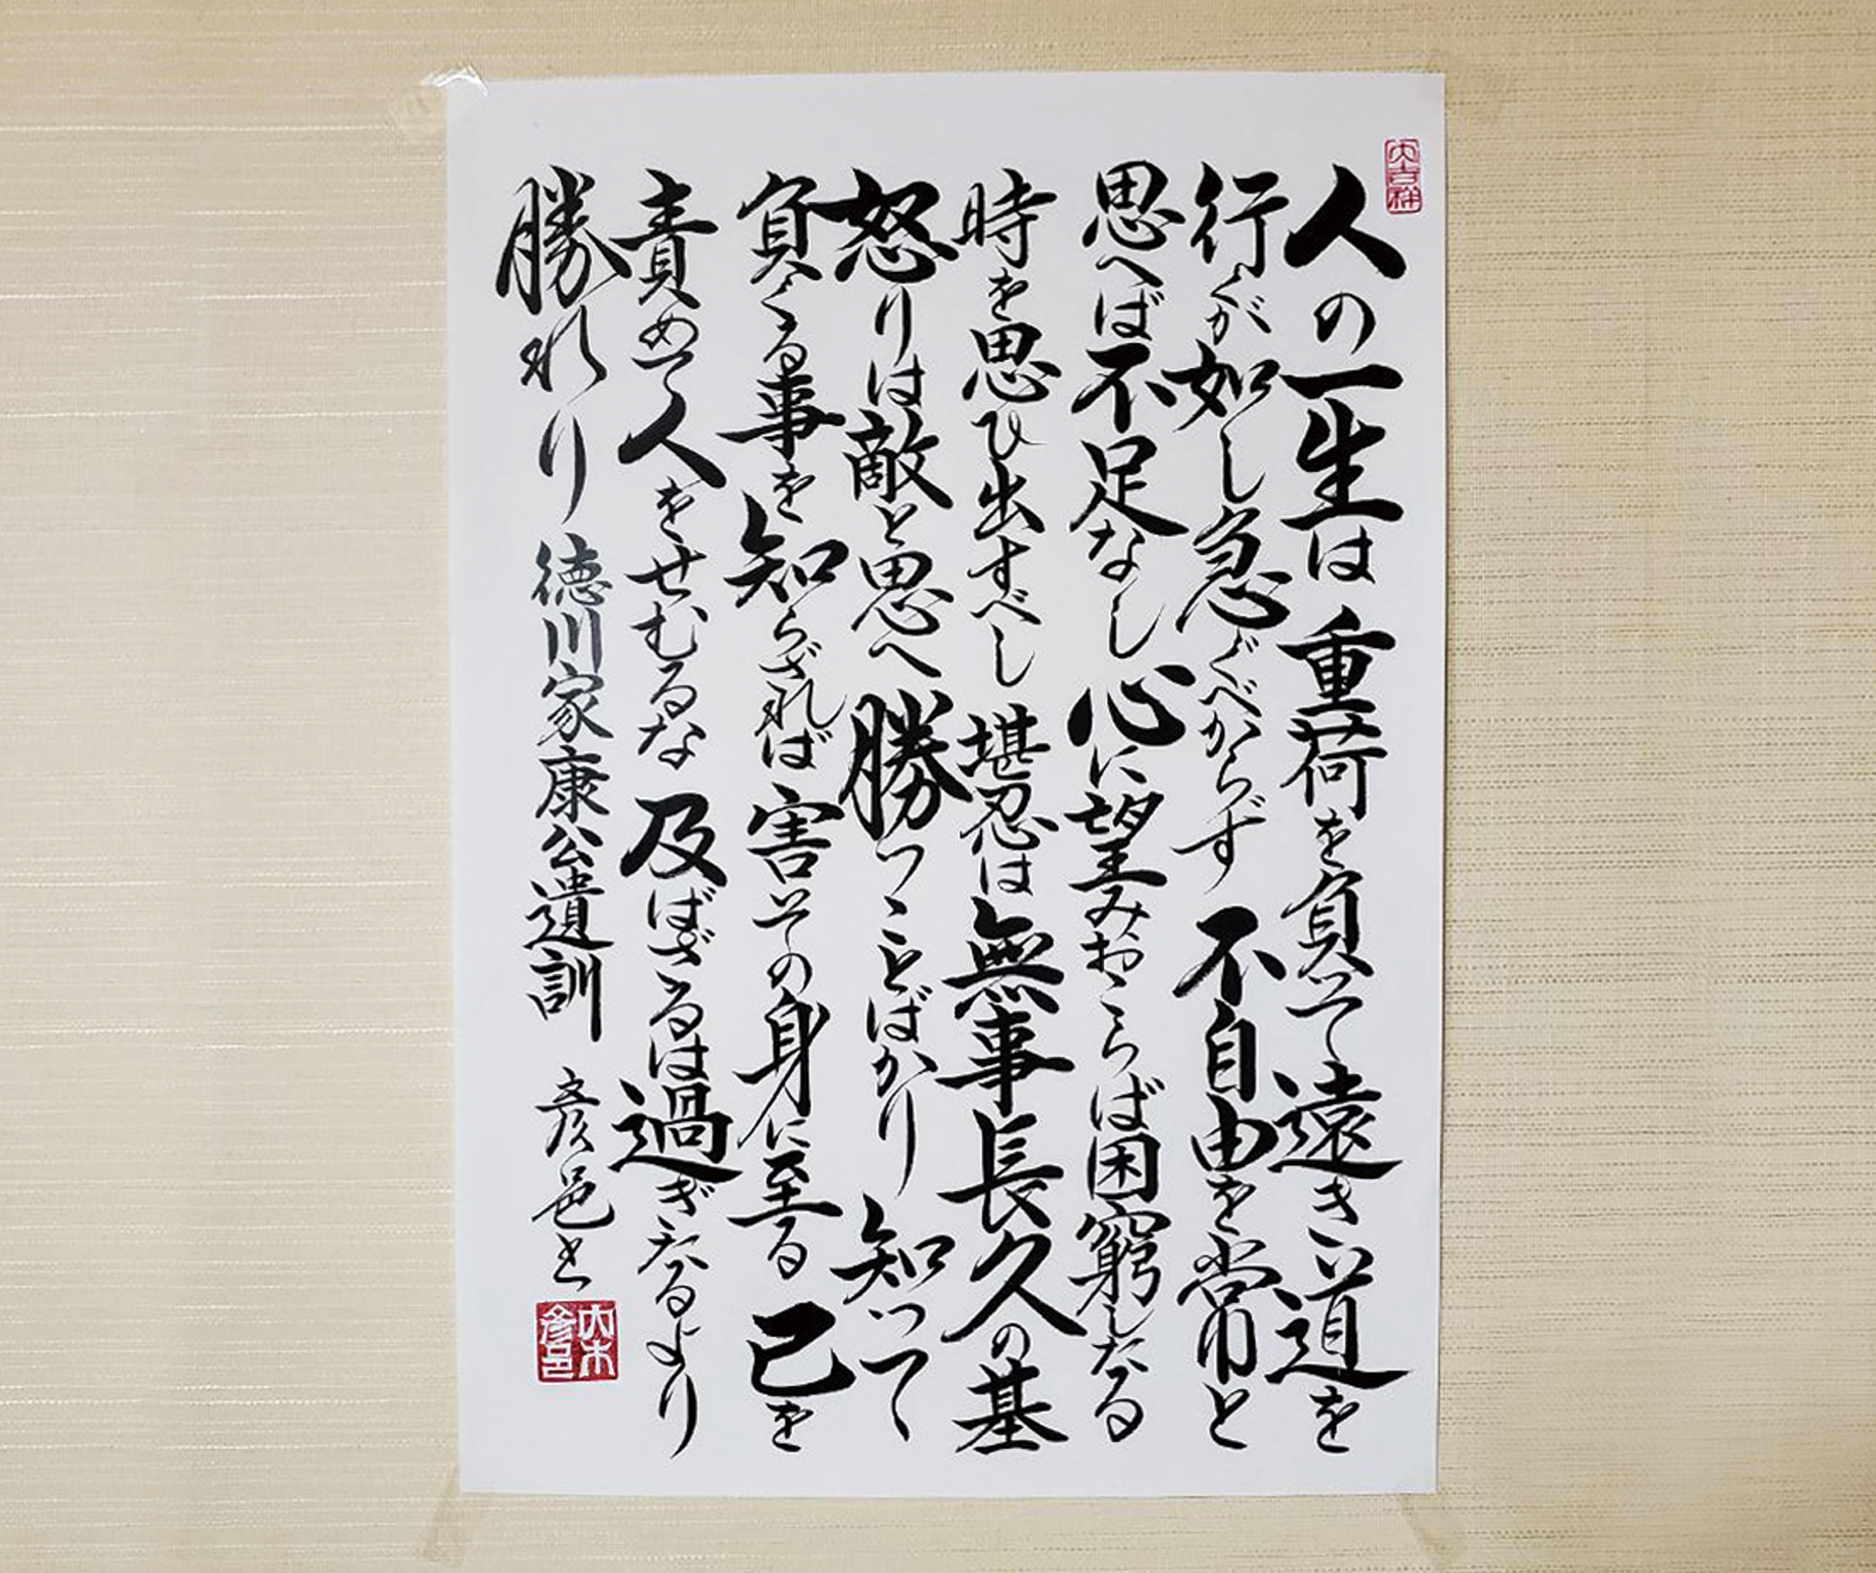 大吉祥
人の一生は重荷を負って遠き道を
行くが如し急ぐべからず不自由を常と
思へば不足なし心に望みおこらば困窮したる
時を思ひ出すべし堪忍は無事長久の基
怒りは敵と思へ勝つことばかり知って
負くる事を知らざれば害その身に至る己を
責めて人をせむるな及ばざるは過ぎたるより
勝れり 徳川家康公遺訓 彦邑書